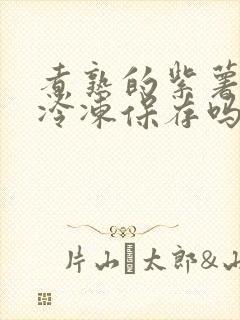 煮熟的紫薯
冷凍保存吗
片山 太郎&山